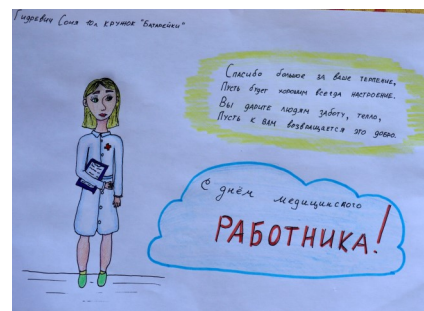 Гидревич Соня 10л кружок "Батарейки"
Спасибо большое за ваше терпение,
Пусть будет хорошим всегда настроение.
Вы дарите людям заботу, тепло,
Пусть к вам возвращается это добро.
С днём медицинского
РАБОТНИКА!